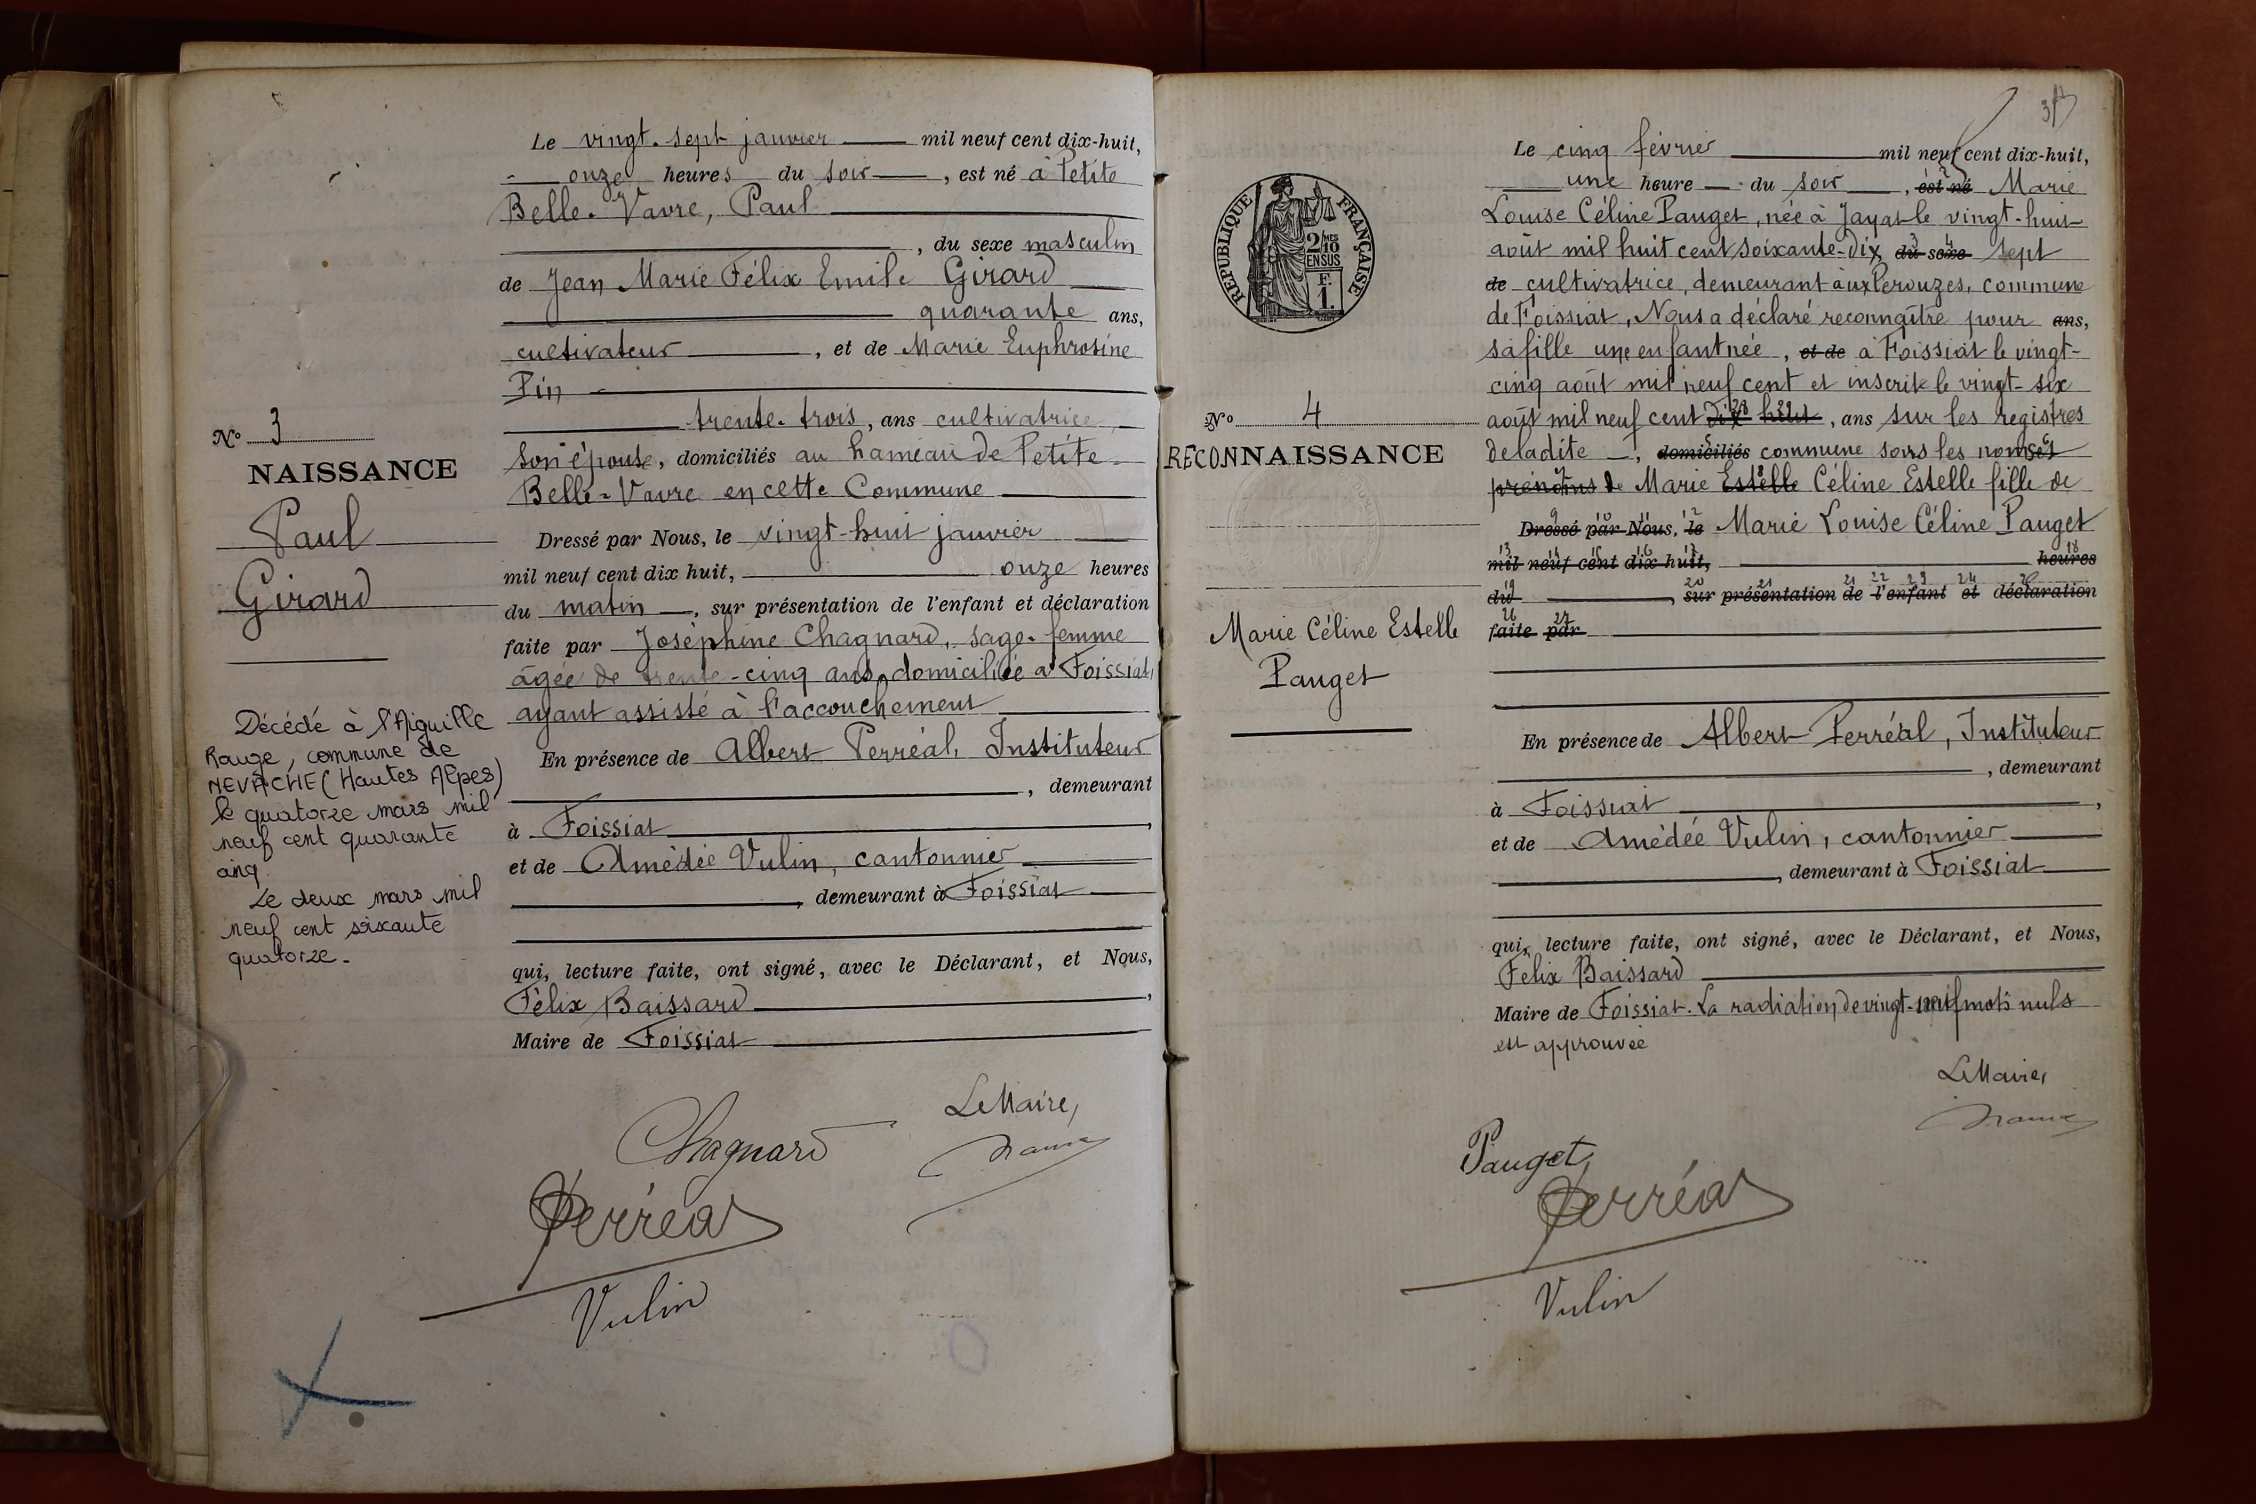 Le vingt-sept janvier mil neuf cent dix-huit,
onze heures du soir, est né à Petite
Belle-Vavre, Paul
, du sexe masculin
de Jean Marie Félix Emile Girard
quarante ans,
cultivateur, et de Marie Euphrosine
Pin
trente-trois, ans cultivatrice,
son épouse, domiciliés au hameau de Petite
Belle-Vavre en cette Commune
Dressé par Nous, le vingt-huit janvier
mil neuf cent dix huit, onze heures
du matin, sur présentation de l'enfant et déclaration
faite par Joséphine Chagnard, sage-femme
âgée de trente-cinq ans, domiciliée à Foissiat,
ayant assisté à l'accouchement
En présence de Albert Perréal, Instituteur
, demeurant
à Foissiat,
et de Amédée Vulin, cantonnier
, demeurant à Foissiat
qui, lecture faite, ont signé, avec le Déclarant, et Nous,
Félix Baissard,
Maire de Foissiat
Le Maire,
Chagnard
Perréal
Vulin
No 3
NAISSANCE
Paul
Girard
Décédé à l'Aiguille
Rouge, commune de
NEVACHE (Hautes Alpes)
le quatorze mars mil
neuf cent quarante
cinq.
Le deux mars mil
neuf cent soixante
quatorze.
3
Le cinq février mil neuf cent dix-huit,
une heure du soir, est né Marie
Louise Céline Pauget, née à Jayat le vingt-huit
août mil huit cent soixante-dix du sexe sept
de cultivatrice, demeurant aux Perouzes, commune
de Foissiat, Nous a déclaré reconnaître pour ans,
sa fille une enfant née, et de à Foissiat le vingt-
cinq août mil neuf cent et inscrite le vingt-six
août mil neuf cent dix huit, ans sur les registres
de ladite, domiciliés commune sous les noms et
prénoms de Marie Estelle Céline Estelle fille de
Dressé par Nous, le Marie Louise Céline Pauget
mil neuf cent dix-huit, heures
du, sur présentation de l'enfant et déclaration
faite par
En présence de Albert Perréal, Instituteur
, demeurant
à Foissiat,
et de Amédée Vulin, cantonnier
, demeurant à Foissiat
qui, lecture faite, ont signé, avec le Déclarant, et Nous,
Félix Baissard
Maire de Foissiat. La radiation de vingt-neuf mots nuls
est approuvée
Le Maire,
Pauget
Perréal
Vulin
RÉPUBLIQUE FRANÇAISE
2/10
EN SUS
F.
1.
No 4
RECONNAISSANCE
Marie Céline Estelle
Pauget